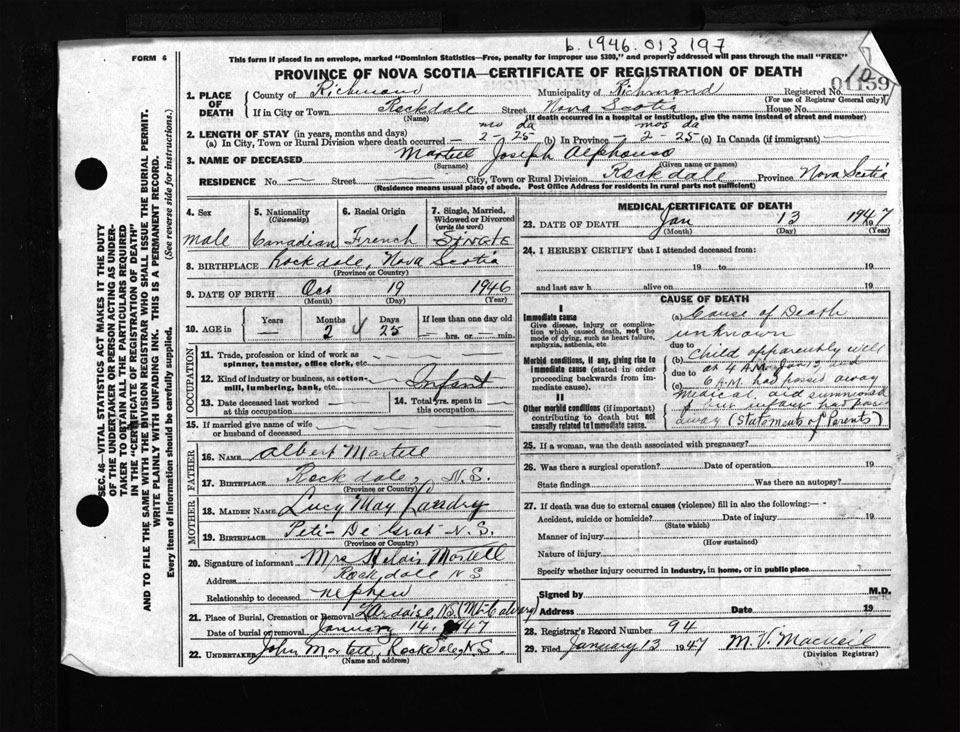 b. 1946. 013 197
FORM 6
This form if placed in an envelope, marked "Dominion Statistics—Free, penalty for improper use $300," and properly addressed will pass through the mail "FREE"
PROVINCE OF NOVA SCOTIA—CERTIFICATE OF REGISTRATION OF DEATH
SEC. 46—VITAL STATISTICS ACT MAKES IT THE DUTY
OF THE UNDERTAKER OR PERSON ACTING AS UNDER-
TAKER TO OBTAIN ALL THE PARTICULARS REQUIRED
IN THE "CERTIFICATE OF REGISTRATION OF DEATH"
AND TO FILE THE SAME WITH THE DIVISION REGISTRAR WHO SHALL ISSUE THE BURIAL PERMIT.
WRITE PLAINLY WITH UNFADING INK. THIS IS A PERMANENT RECORD.
Every item of information should be carefully supplied. (See reverse side for instructions.)
1. PLACE OF DEATH
County of Richmond Municipality of Richmond Registered No.
(For use of Registrar General only)
If in City or Town Rockdale Street Nova Scotia House No.
(Name) (If death occurred in a hospital or institution, give the name instead of street and number)
2. LENGTH OF STAY (in years, months and days) mo da mos da
(a) In City, Town or Rural Division where death occurred — 2 - 25 (b) In Province — 2 - 25 (c) In Canada (if immigrant)
3. NAME OF DECEASED Martell Joseph Alphonso
(Surname) (Given name or names)
RESIDENCE No — Street City, Town or Rural Division Rockdale Province Nova Scotia
(Residence means usual place of abode. Post Office Address for residents in rural parts not sufficient)
4. Sex
male
5. Nationality
(Citizenship)
Canadian
6. Racial Origin
French
7. Single, Married, Widowed or Divorced
(write the word)
SINGLE
8. BIRTHPLACE Rockdale, Nova Scotia
(Province or Country)
9. DATE OF BIRTH Oct 19 1946
(Month) (Day) (Year)
10. AGE in Years — Months 2 Days 25 If less than one day old
hrs. or min.
OCCUPATION
11. Trade, profession or kind of work as
spinner, teamster, office clerk, etc.
12. Kind of industry or business, as cotton-
mill, lumbering, bank, etc. Infant
13. Date deceased last worked
at this occupation
14. Total yrs. spent in
this occupation
15. If married give name of wife
or husband of deceased
FATHER
16. NAME Albert Martell
17. BIRTHPLACE Rockdale, N.S.
(Province or Country)
MOTHER
18. MAIDEN NAME Lucy May Landry
19. BIRTHPLACE Peti-De Grat N.S.
(Province or Country)
20. Signature of informant Mrs Martell
Address Rockdale N S
Relationship to deceased nephew
21. Place of Burial, Cremation or Removal L'Ardoise, N.S. (Mt. Calvary)
Date of burial or removal January 14, 1947
22. UNDERTAKER John Martell, Rockdale, N.S.
(Name and address)
MEDICAL CERTIFICATE OF DEATH
23. DATE OF DEATH Jan 13 1947
(Month) (Day) (Year)
24. I HEREBY CERTIFY that I attended deceased from:
19 to 19
and last saw h alive on 19
CAUSE OF DEATH
I
Immediate cause
Give disease, injury or complica-
tion which caused death, not the
mode of dying, such as heart failure,
asphyxia, asthenia, etc.
Morbid conditions, if any, giving rise to
immediate cause (stated in order
proceeding backwards from im-
mediate cause).
II
Other morbid conditions (if important)
contributing to death but not
causally related to immediate cause.
(a) Cause of Death
unknown
due to
(b) Child apparently well
at 4 A.M. Jan 13, and
due to
(c) 6 A.M. had passed away
Medical aid summoned
but infant had pass
away (Statements of Parents)
25. If a woman, was the death associated with pregnancy?
26. Was there a surgical operation? Date of operation 19
State findings Was there an autopsy?
27. If death was due to external causes (violence) fill in also the following:—
Accident, suicide or homicide? Date of injury 19
(State which)
Manner of injury
(How sustained)
Nature of injury
Specify whether injury occurred in industry, in home, or in public place
Signed by M.D.
Address Date 19
28. Registrar's Record Number 94
29. Filed January 13 1947 M. V. MacNeil
(Division Registrar)